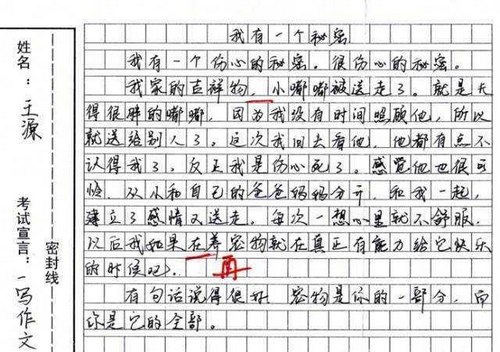 我有一个秘密
我有一个伤心的秘密。很伤心的秘密。
我家的吉祥物,小嘟嘟被送走了。就是长
得很胖的嘟嘟,因为我没有时间照顾他,所以
就送给别人了。这次我回去看他,他都有点不
认得我了,反正我是伤心死了。感觉他也很可
怜,从小和自己的爸爸妈妈分开,和我一起,
建立了感情又送走,每次一想心里就不舒服,
以后我如果在养宠物就在真正有能力给它快乐
的时候吧。
再
有句话说得很好,宠物是你的一部分,而
你是它的全部。
姓名:王源
考试宣言:一写作文
密封线